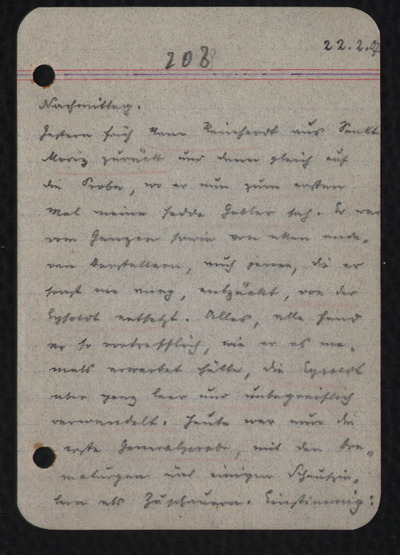 208
22.2.07
Nachmittag.
Gestern früh kam Reinhardt aus Sankt
Moriz zurück und dann gleich auf
die Probe, wo er nun zum ersten
Mal meine Hedda Gabler sah. Er war
vom Ganzen sowie von allen ande-
ren Darstellern, auch jenen, die er
sonst nie mag, entzückt, von der
Eysoldt entsetzt. Alles, alle fand
er so vortrefflich, wie er es nie-
mals erwartet hätte, die Eysoldt
aber ganz leer und unbegreiflich
verwandelt. Heute war nun die
erste Generalprobe, mit den Dra-
maturgen und einigen Schauspie-
lern als Zuschauern. Einstimmig: